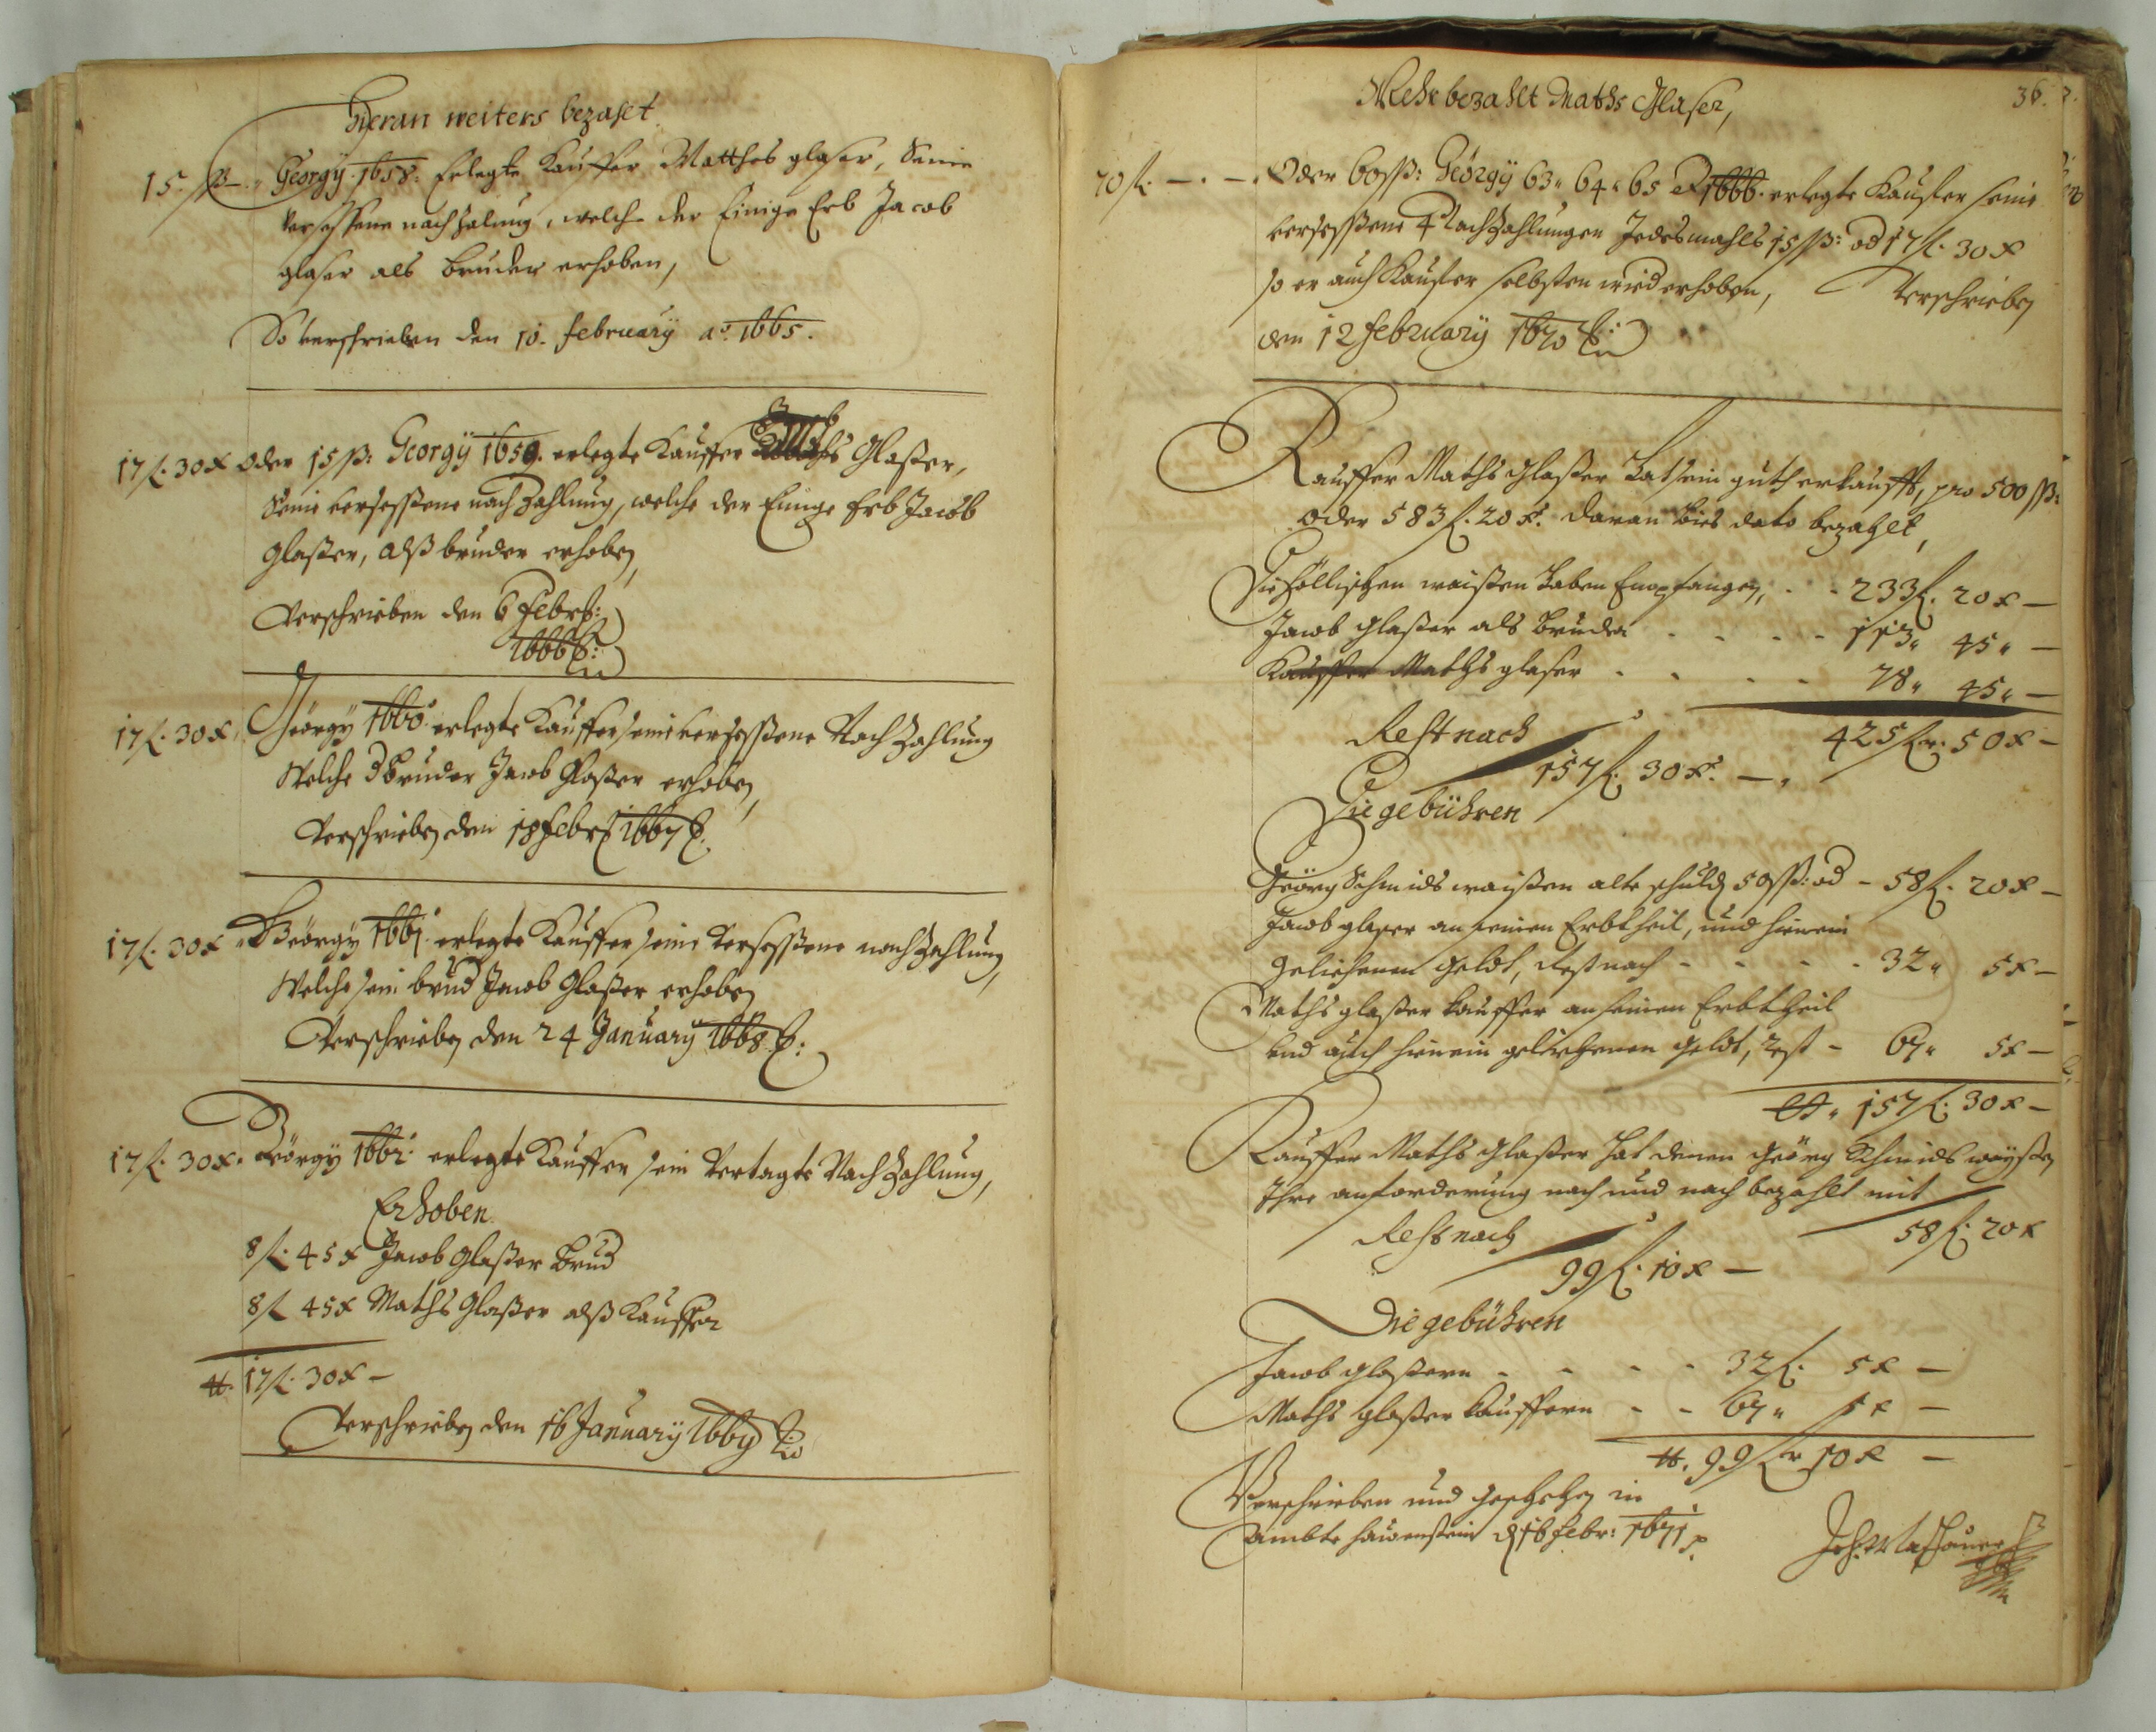 Hieran weiters bezahlt
15. ß — Georgÿ 1658. Erlegte Kauffer Matthes glaser, Seine
versessene nachzalung, welche der Einige Erb Jacob
glaser als bruder erhoben,
So verschrieben den 10. february ao. 1665.
17 fl. 30 x oder 15 ß: Georgÿ 1659. erlegte Kauffer Glaßer,
Seine versessene nachzahlung, welche der Einige Erb Jacob
Glaßer, alß bruder erhoben,
Verschrieben den 6 Febr:
1666
17 fl. 30 x Geörgÿ 1660. erlegte Kauffer seine versessene Nachzahlung
Welche d Bruder Jacob Glaßer erhoben,
Verschrieben den 18 Febr 1667
17 fl. 30 x Geörgÿ 1661. erlegte Kauffer seine Versessene nachzahlung,
Welche sein brud Jacob Glaßer erhoben
Verschrieben den 24 Januarÿ 1668
17 fl. 30 x. Geörgÿ 1662. erlegte Kauffer sein Vertagte Nachzahlung,
Erhoben
8 fl. 45 x Jacob Glaßer Brud
8 fl 45 x Maths Glaßer alß Kauffer
17 fl. 30 x —
Verschrieben den 16 Januarÿ 1669
36.
Mehr bezahlt Maths Glaser,
70 fl. — . — . Oder 60 ß: Geörgÿ 63, 64, 65 et 1666. erlegte Kaufer seine
versessene 4 Nachzahlungen Jedesmahls 15 ß: od 17 fl. 30 x
so er auch Kaufer selbsten wied erhoben, Verschrieben
den 12 february 1670
Kauffer Maths Glaßer hat sein guth erkaufft, pro 500 ß:
oder 583 fl. 20 x. daran bies dato bezahlt,
Die waißen haben Empfangen, . . 233 fl. 20 x —
Jacob Glaßer als bruder - - - - 113 „ 45 „ —
Kauffer Maths glaser - - - - 78 „ 45 „ —
425 fl. 50 x —
Rest nach
157 fl. 30 x. —
Die gebühren
Geörg Schmids waißen alte schuld 50 ß: od - 58 fl. 20 x —
Jacob glaser an seinen Erbtheil, und hierein
geliehenen geldt, Rest nach - - - - 32 „ 5 x —
Maths glaßer kauffer an seinen Erbtheil
und auch hierein geliehenen geldt, rest - 67 „ 5 x —
157 fl. 30 x —
Kauffer Maths Glaßer hat denen Geörg Schmids waÿßen
Ihre anforderung nach und nach bezahlt mit
58 fl. 20 x
Rest nach
99 fl. 10 x —
Die gebühren
Jacob Glaßern - - - - 32 fl. 5 x —
Maths Glaßer Kauffern - - 67 „ 5 x —
99 fl 10 x —
Verschrieben und geschehen in
Ambte Hauenstein d 16 Febr: 1671